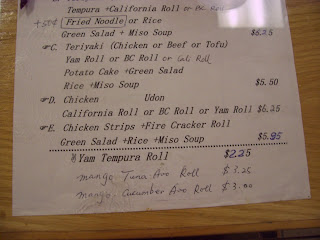 Tempura +California Roll or BC Roll
+50¢ Fried Noodle or Rice
Green Salad + Miso Soup $5.25
☞C. Teriyaki (Chicken or Beef or Tofu)
Yam Roll or BC Roll or Cali Roll
Potato Cake +Green Salad
Rice +Miso Soup $5.50
☞D. Chicken Udon
California Roll or BC Roll or Yam Roll $6.25
☞E. Chicken Strips +Fire Cracker Roll
Green Salad +Rice +Miso Soup $5.95
Yam Tempura Roll $2.25
mango Tuna Avo Roll $3.25
mango Cucumber Avo Roll $3.00